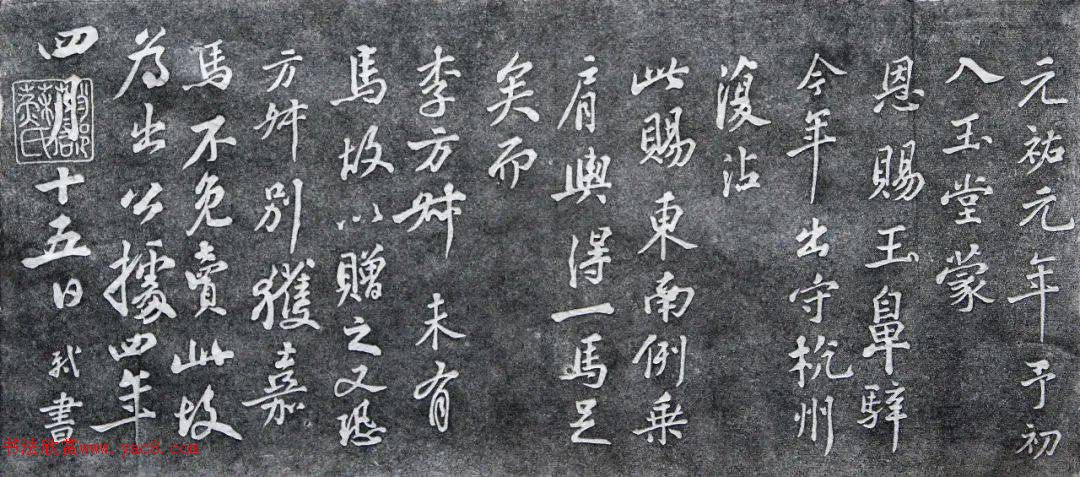 元祐元年予初
入玉堂蒙
恩賜玉鼻騂
今年出守杭州
復沾
此賜東南例乘
肩輿得一馬足
矣而
李方叔未有
馬故以贈之又恐
方叔別獲嘉
馬不免賣此故
為出公據四年
四月十五日軾書
书法欣赏www.yac8.com